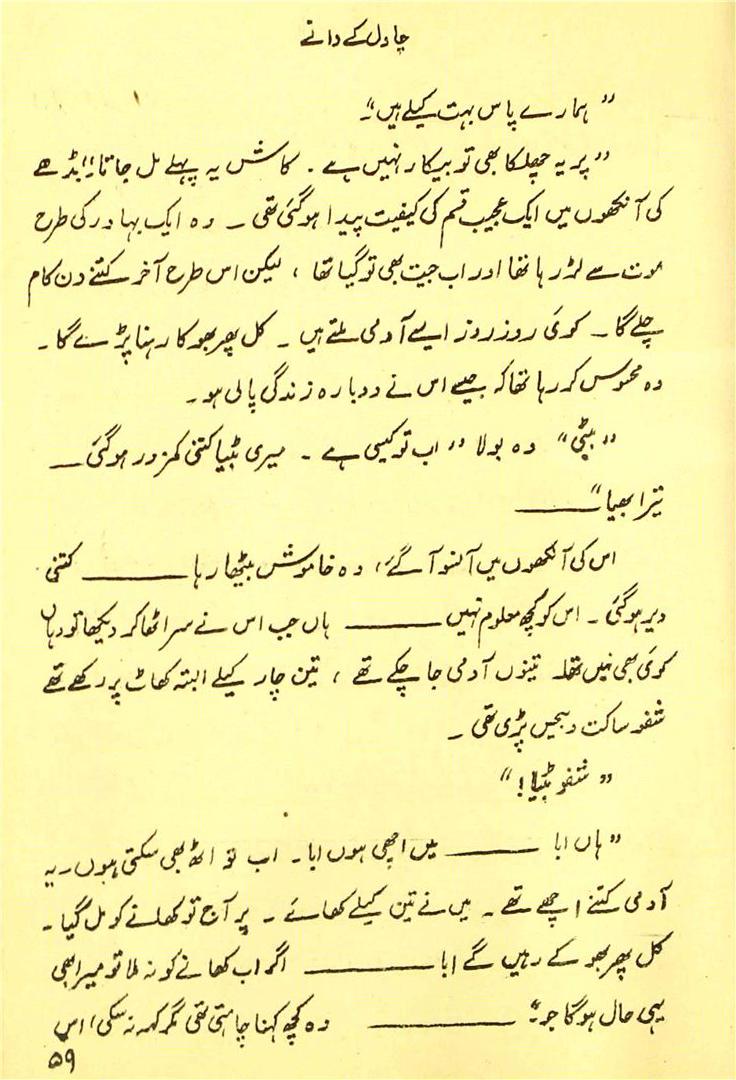 چاول کے دانے
”ہمارے پاس بہت کیلے ہیں“۔
”پر یہ چھلکا بھی تو بیکار نہیں ہے۔ کاش یہ پہلے مل جاتا!“ بڈھے
کی آنکھوں میں ایک عجیب قسم کی کیفیت پیدا ہو گئی تھی ۔ وہ ایک بہادر کی طرح
موت سے لڑ رہا تھا اور اب جیت بھی تو گیا تھا ، لیکن اس طرح آخر کتنے دن کام
چلے گا ۔ کوئی روز روز ایسے آدمی ملتے ہیں ۔ کل پھر بھوکا رہنا پڑے گا ۔
وہ محسوس کر رہا تھا کہ جیسے اس نے دوبارہ زندگی پالی ہو ۔
”بیٹی“ وہ بولا ”اب تو کیسی ہے ۔ میری بٹیا کتنی کمزور ہو گئی ــــ
تیرا بھیا“ ــــــــ
اس کی آنکھوں میں آنسو آ گئے، وہ خاموش بیٹھا رہا ــــــــ کتنی
دیر ہو گئی ۔ اس کو کچھ معلوم نہیں ــــــــ ہاں جب اس نے سر اٹھا کر دیکھا تو وہاں
کوئی بھی نہیں تھا۔ تینوں آدمی جا چکے تھے ، تین چار کیلے البتہ کھاٹ پر رکھے تھے
شفو ساکت و بیحس پڑی تھی ۔
”شفو بٹیا!“
”ہاں ابا ــــــــ میں اچھی ہوں ابا ۔ اب تو اٹھ بھی سکتی ہوں ۔ یہ
آدمی کتنے اچھے تھے ۔ میں نے تین کیلے کھائے ۔ پر آج تو کھانے کو مل گیا ۔
کل پھر بھوکے رہیں گے ابا ــــــــ اگر اب کھانے کو نہ ملا تو میرا بھی
یہی حال ہو گا جو“ ــــــــ وہ کچھ کہنا چاہتی تھی مگر کہہ نہ سکی، اس
۵۹